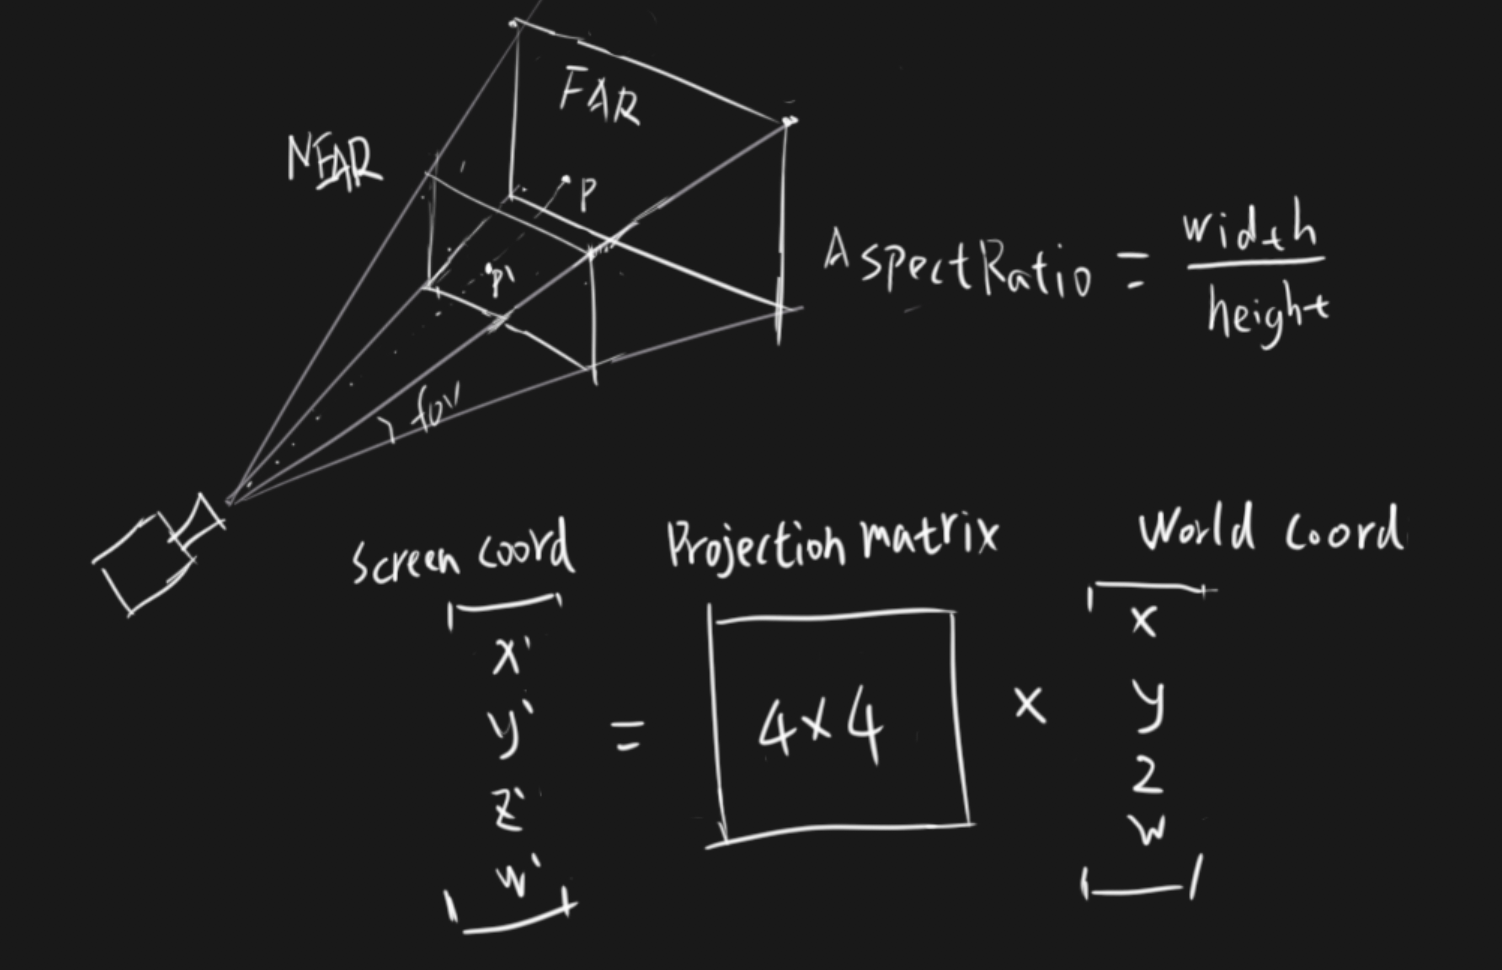 FAR
NEAR
P
P'
fov
AspectRatio = width / height
Screen coord
Projection matrix
World coord
x'
y'
z'
w'
=
4x4
x
x
y
z
w